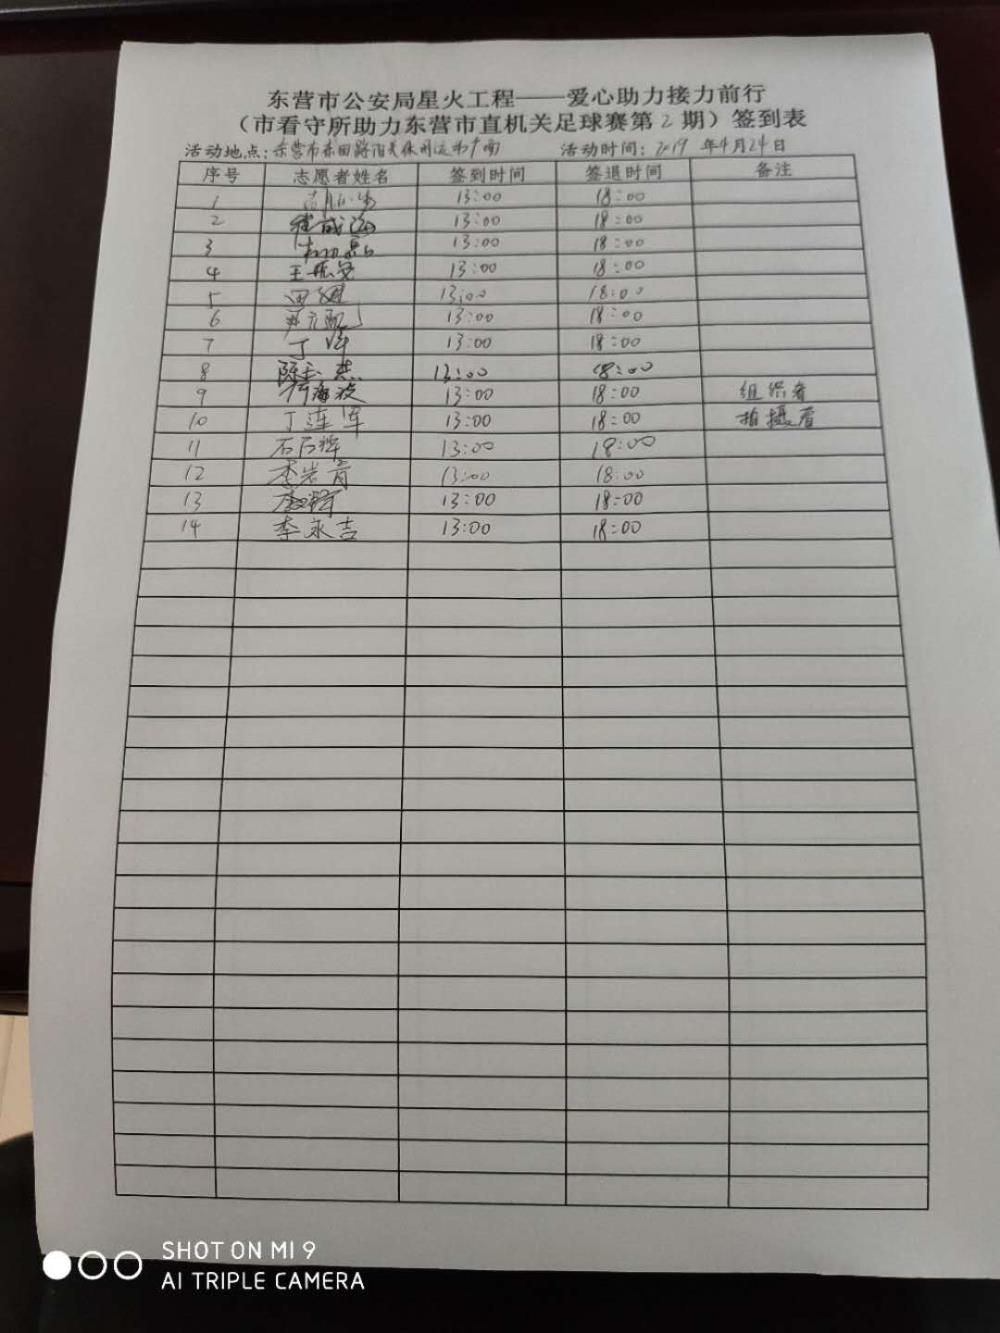 东营市公安局星火工程——爱心助力接力前行
（市看守所助力东营市直机关足球赛第2期）签到表
活动地点：东营市 活动时间：2019年4月24日
序号 志愿者姓名 签到时间 签退时间 备注
1 13:00 18:00
2 13:00 18:00
3 13:00 18:00
4 王 13:00 18:00
5 田 13:00 18:00
6 13:00 18:00
7 丁 13:00 18:00
8 陈 13:00 18:00
9 海波 13:00 18:00 组织者
10 丁连军 13:00 18:00 拍摄者
11 石 13:00 18:00
12 李岩青 13:00 18:00
13 13:00 18:00
14 李永吉 13:00 18:00
SHOT ON MI 9
AI TRIPLE CAMERA